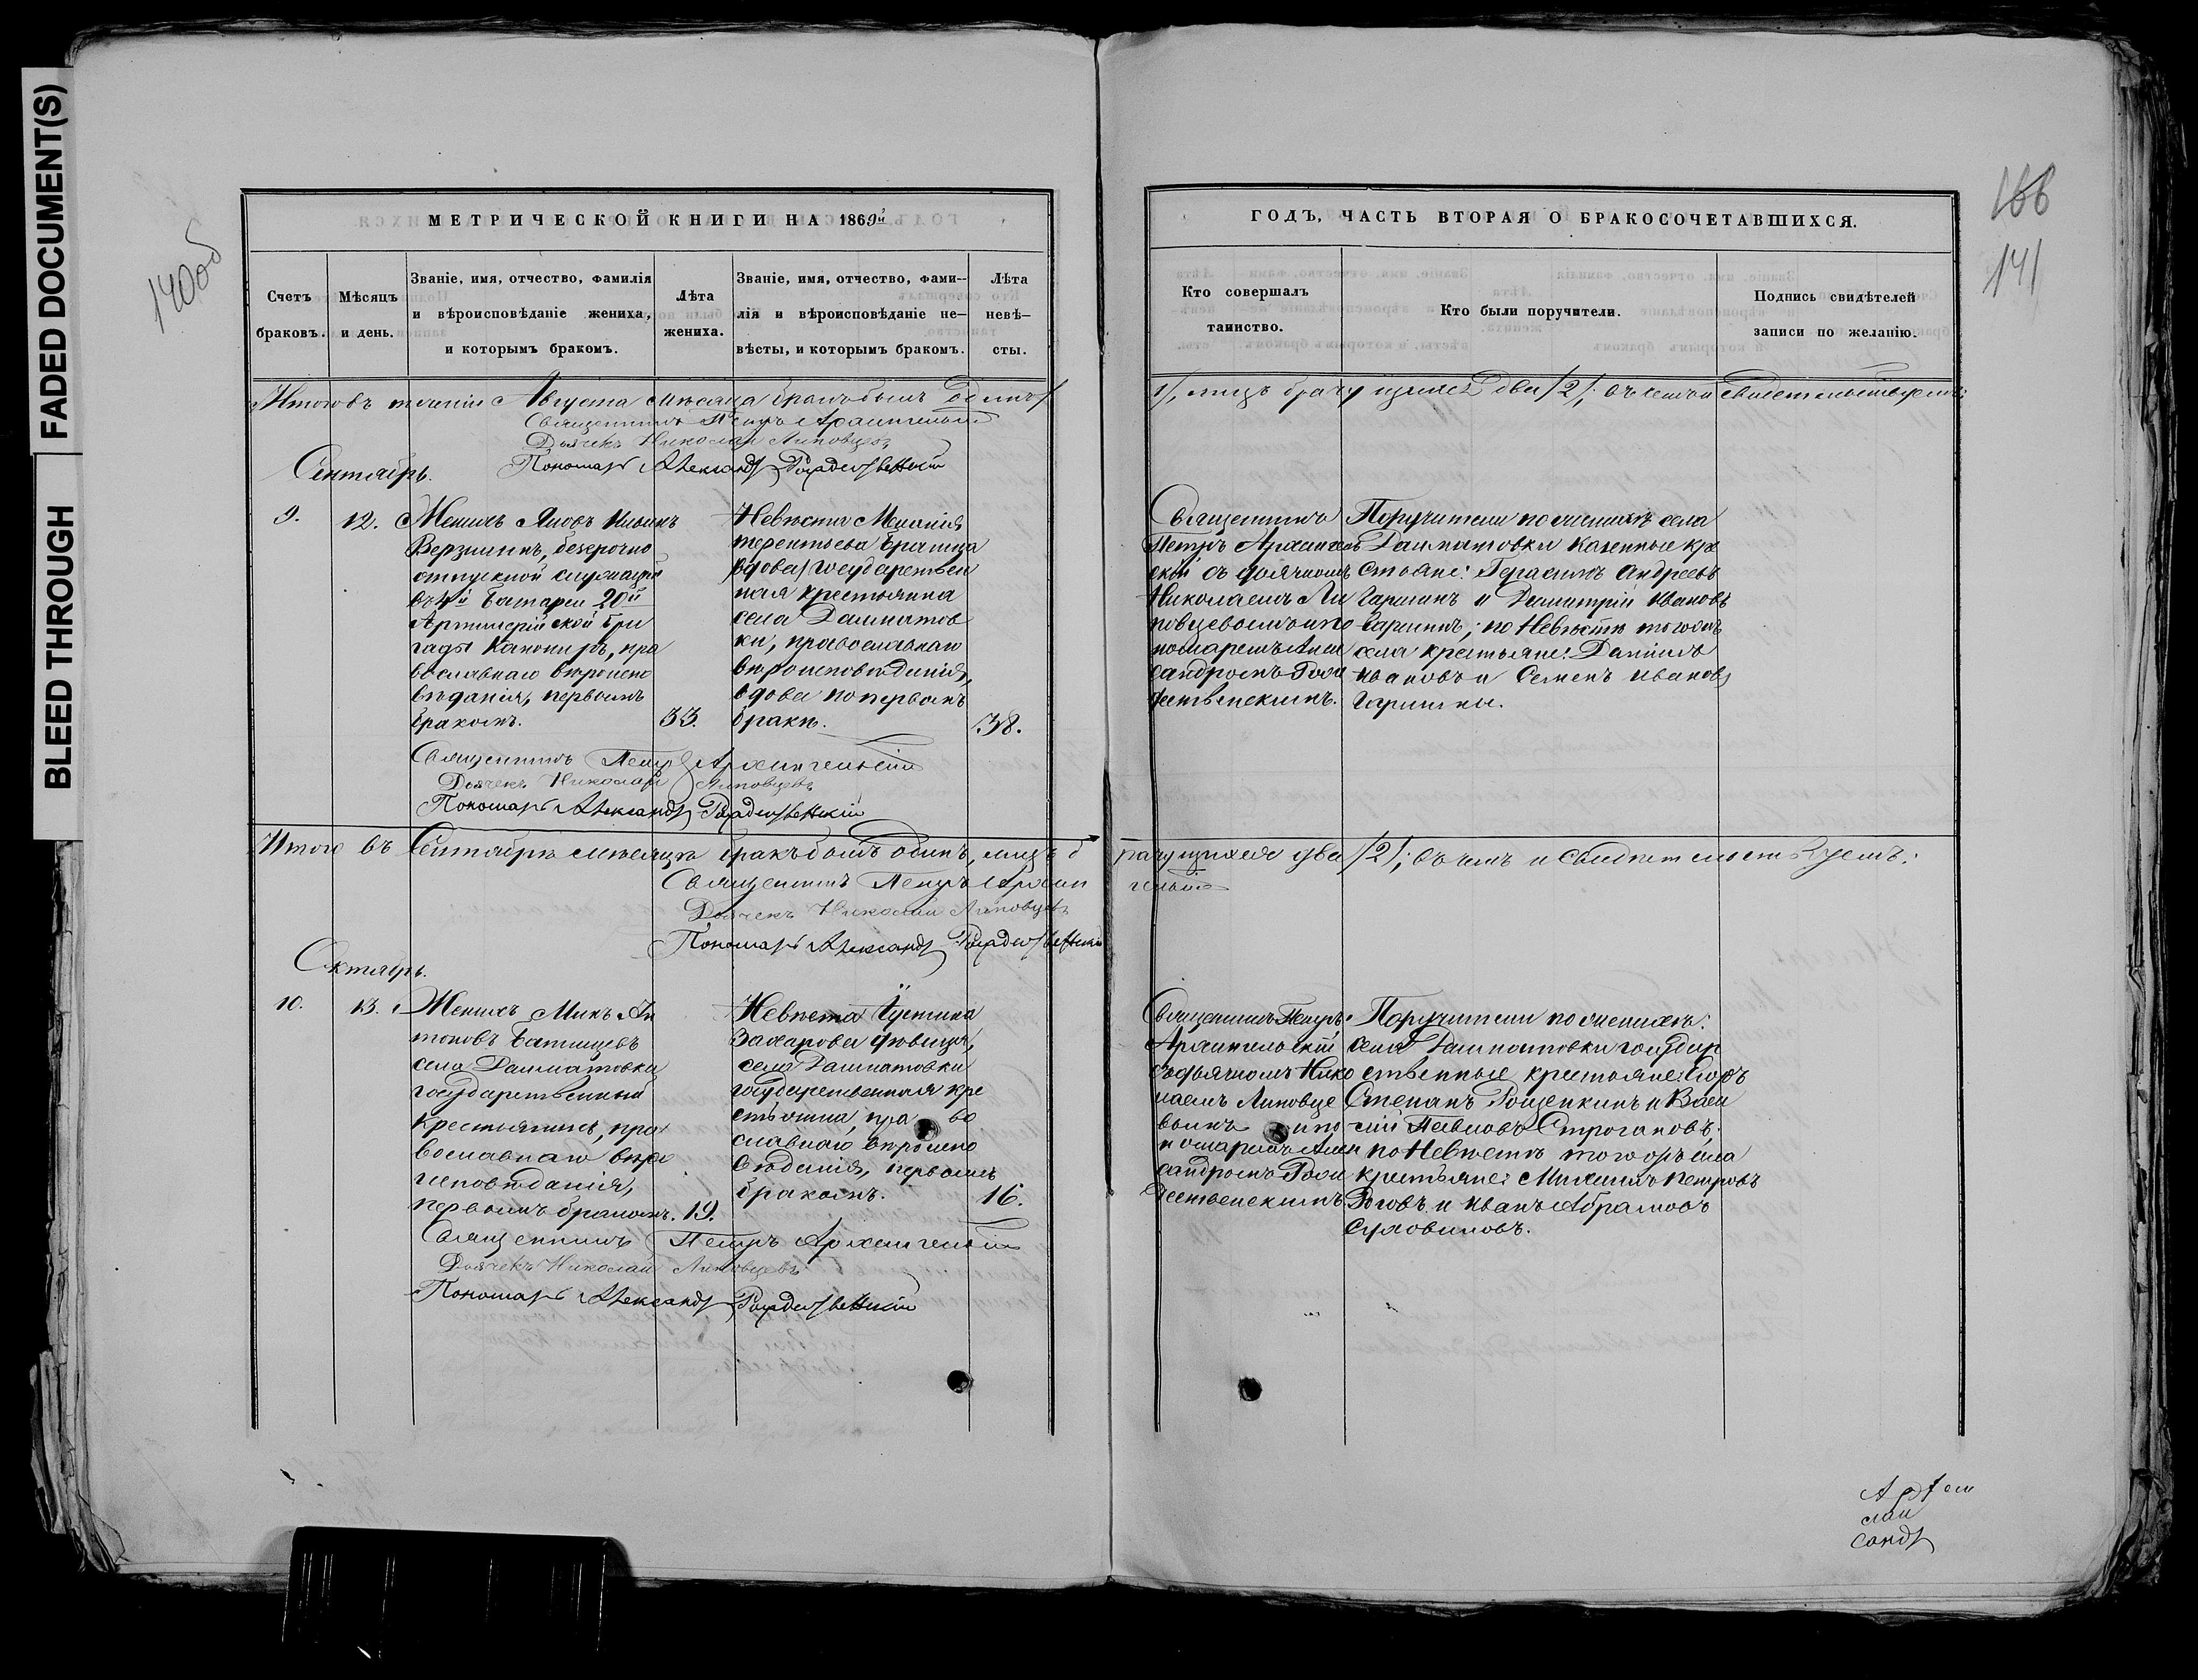 FADED DOCUMENT(S)
BLEED THROUGH
140об
166
141
МЕТРИЧЕСКОЙ КНИГИ НА 1869й
ГОДЪ, ЧАСТЬ ВТОРАЯ О БРАКОСОЧЕТАВШИХСЯ.
Счетъ
браковъ.
Мѣсяцъ
и день.
Званіе, имя, отчество, фамилія
и вѣроисповѣданіе жениха,
и которымъ бракомъ.
Лѣта
жениха.
Званіе, имя, отчество, фами-
лія и вѣроисповѣданіе не-
вѣсты, и которымъ бракомъ.
Лѣта
невѣ-
сты.
Кто совершалъ
таинство.
Кто были поручители.
Подпись свидѣтелей
записи по желанію.
Итого въ теченіи Августа мѣсяца бракъ былъ Одинъ /
1/, лицъ брачущихся два /2/; въ чемъ и свидетельствуемъ:
Священникъ Петръ Архангельскій
Дьячекъ Николай Липовцевъ
Пономарь Александръ Рождественскій
Сентябрь.
9.
12.
Женихъ Яковъ Ильинъ
Верзилинъ, безсрочно
отпускной служащій
въ 4й Батареи 20й
Артиллерійской Бри
гады Канониръ, пра
вославнаго вѣроиспо
вѣданія, первымъ
бракомъ.
33.
Невѣста Меланія
Терентьева
вдова, государствен
ная крестьянка
села Далматов
ки, православнаго
вѣроисповѣданія,
вдова по первомъ
бракѣ.
38.
Священникъ
Петръ Архангель
скій съ дьячкомъ
Николаемъ Ли
повцевымъ и по
номаремъ Алек
сандромъ Рож
дественскимъ.
Поручители по женихѣ села
Далматовки казенные кре
стьяне: Герасимъ Андреевъ
Гаршинъ и Димитрій Ивановъ
Гаршинъ; по Невѣстѣ тогожъ
села крестьяне: Даніилъ
Ивановъ и Семенъ Ивановъ
Гаршины.
Священникъ Петръ Архангельскій
Дьячекъ Николай Липовцевъ
Пономарь Александръ Рождественскій
Итого въ Сентябрѣ мѣсяцѣ бракъ былъ одинъ, лицъ б
рачущихся два /2/; въ чемъ и свидѣтельствуемъ:
Священникъ Петръ Архан
гельскій
Дьячекъ Николай Липовцевъ
Пономарь Александръ Рождественскій
Октябрь.
10.
13.
Женихъ Минъ Ан
тоновъ Батищевъ
села Далматовки
государственный
крестьянинъ, пра
вославнаго вѣро
исповѣданія,
первымъ бракомъ.
19.
Невѣста Іустина
Захарова дѣвица,
села Далматовки
государственная кре
стьянка, право
славнаго вѣроиспо
вѣданія, первымъ
бракомъ.
16.
Священникъ Петръ
Архангельскій
съ дьячкомъ Нико
лаемъ Липовце
вымъ и по
номаремъ Алек
сандромъ Рож
дественскимъ
Поручители по женихѣ:
села Далматовки государ
ственные крестьяне:
Степанъ Рощепкинъ и Васи
лій Павловъ Строгановъ;
по Невѣстѣ тогожъ села
крестьяне: Михаилъ Петровъ
Роговъ и Иванъ Абрамовъ
Суховиловъ.
Священникъ Петръ Архангельскій
Дьячекъ Николай Липовцевъ
Пономарь Александръ Рождественскій